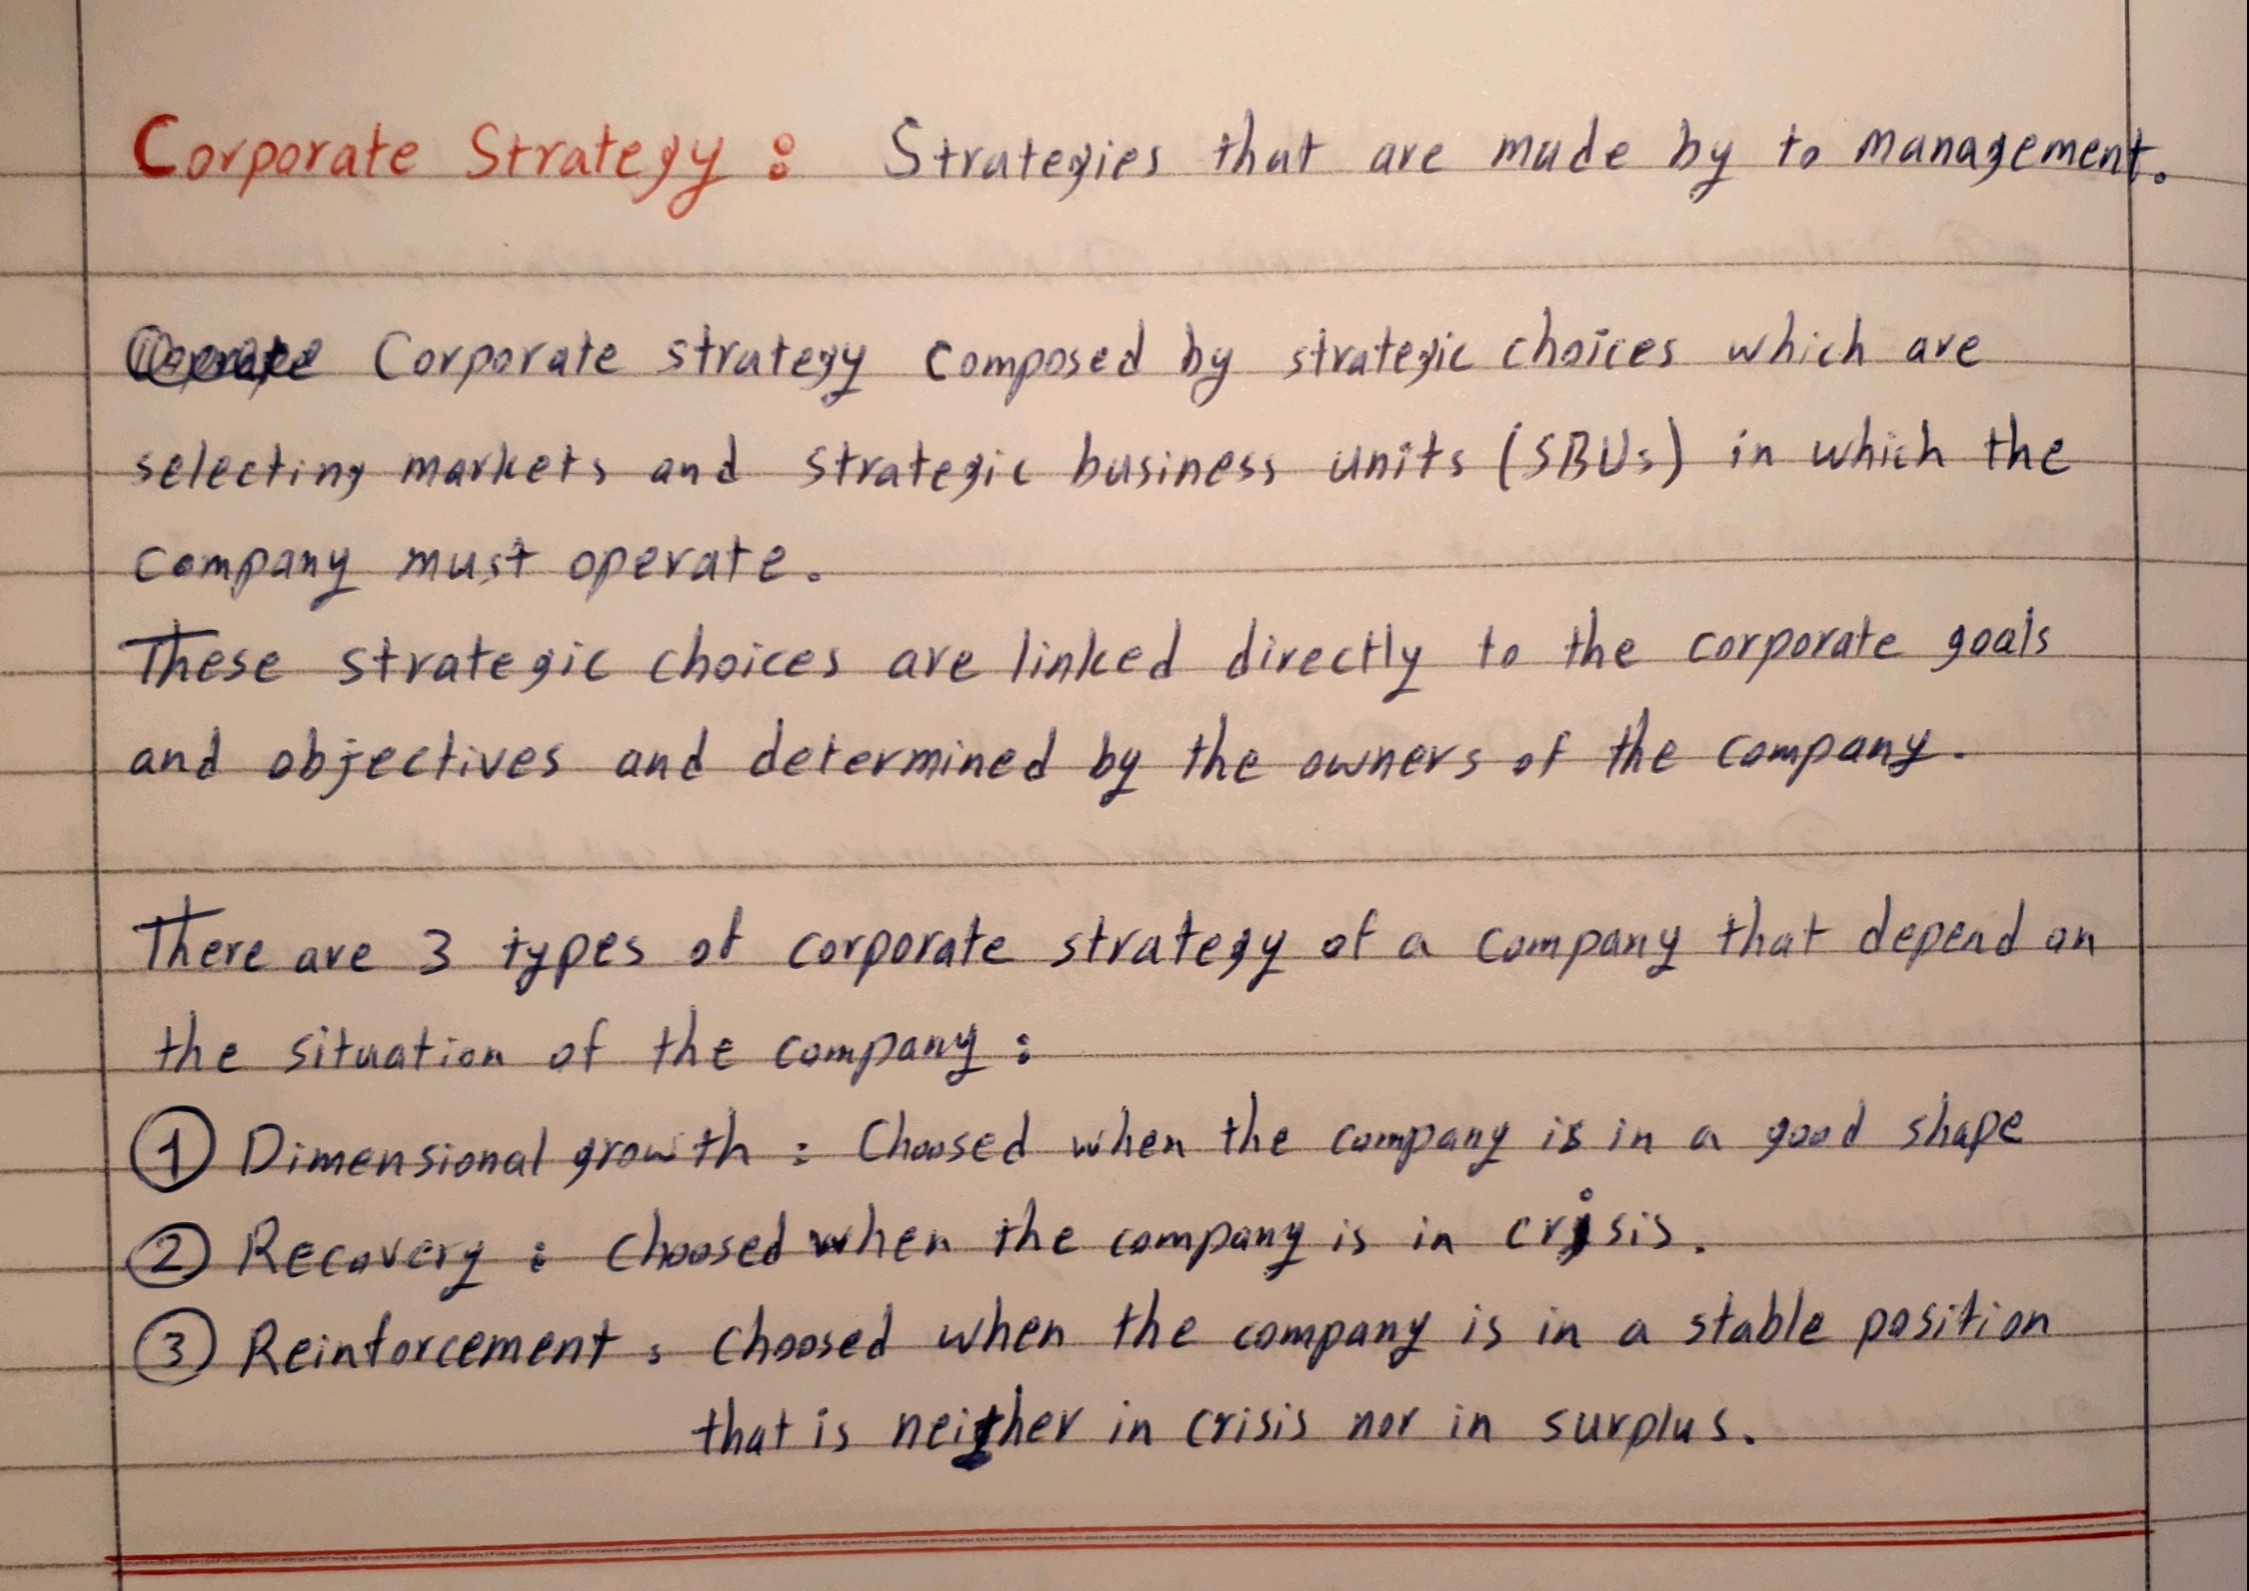 Corporate Strategy : Strategies that are made by to management.
Corporate strategy composed by strategic choices which are
selecting markets and strategic business units (SBUs) in which the
company must operate.
These strategic choices are linked directly to the corporate goals
and objectives and determined by the owners of the company.
There are 3 types of corporate strategy of a company that depend on
the situation of the company :
① Dimensional growth : Choosed when the company is in a good shape
② Recovery : choosed when the company is in crisis.
③ Reinforcement : choosed when the company is in a stable position
that is neither in crisis nor in surplus.